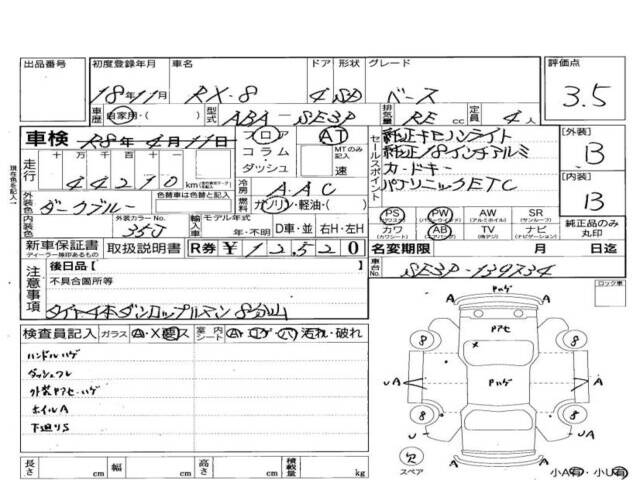 出品番号
初度登録年月
車名
ドア 形状
グレード
評価点
18年11月
RX-8
4
ベース
3.5
車歴 自家用・( )
型式
ABA-SE3P
排気量
RE cc
定員
4人
車検 R8年4月11日
フロア AT
コラム
ダッシュ
MTのみ記入
速
セールスポイント
純正キセノンライト
純正18インチアルミ
カードキー
パナソニックETC
[外装]
B
[内装]
B
現在色を記入
走行
十万 万 千 百 十
44210km
冷房
AAC
外装色
ダークブルー
色替車は色替と記入
燃料
ガソリン・軽油・( )
内装色
外装カラーNo.
35J
輸入車
モデル年式
年・不明
D車・並 右H・左H
PS
(パワステ)
PW
(パワーウィンド)
AW
(アルミホイル)
SR
(サンルーフ)
カワ
(カワシート)
AB
(エアバッグ)
TV
(テレビ)
ナビ
(ナビゲーション)
純正品のみ丸印
新車保証書
ディーラー捺印あるもの
取扱説明書
R券 ¥12,520
名変期限 月 日迄
注意事項
後日品[ ]
不具合箇所等
タイヤ4本ダンロップルマン8分山
車台No.
SE3P-139734
ロック車
検査員記入
ガラス A・X・ス
室内シート A・コゲ・ハ・汚れ・破れ
ハンドルハゲ
ダッシュフレ
外装ヤアセ、ハゲ
ホイルA
下廻りS
Pハゲ
ヤアセ
×
Pハゲ
8
8
8
8
A
UA
A
A
U
UA
A
A
欠
スペア
小A有・小U有
長さ cm
幅 cm
高さ cm
積載量 kg